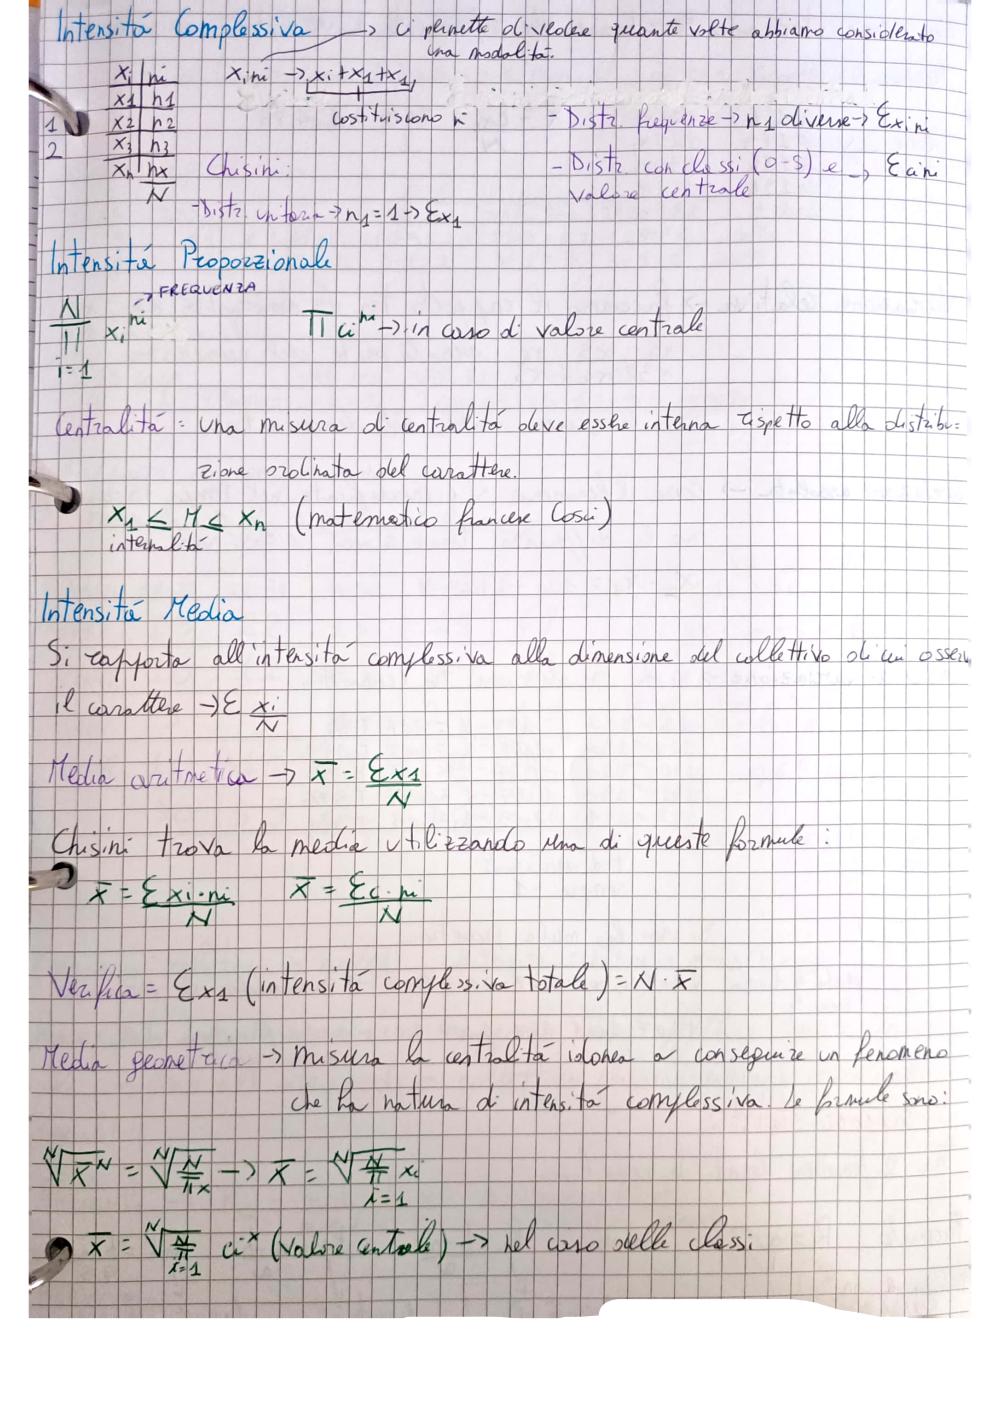 Intensitá Complessiva → ci permette di vedere quante volte abbiamo considerato
una modalitá.
xi | ni xini → xi+x1+x1,
x1 | n1
1 x2 | n2 costituiscono - Distr. frequenze → n1 diverse → Σxini
2 x3 | n3
xn | nx Chisini: - Distr con classi (0-5) e → Σcini
N valore centrale
-Distr unitaria → n1 = 1 → Σx1
Intensitá Proporzionale
→ FREQUENZA
N
Π xi^ni Πci^ni → in caso di valore centrale
i=1
Centralitá = una misura di centralitá deve essere interna rispetto alla distribu=
zione ordinata del carattere.
x1 ≤ M ≤ xn (matematico francese Cosci)
internalitá
Intensitá Media
Si rapporta all'intensitá complessiva alla dimensione del collettivo di cui
il carattere → Σ xi/N
Media aritmetica → x̄ = Σx1/N
Chisini trova la media utilizzando una di queste formule :
x̄ = Σxi·ni/N x̄ = Σc·ni/N
Verifica = Σx1 (intensitá complessiva totale) = N·x̄
Media geometrica → misura la centralitá idonea a conseguire un fenomeno
che ha natura di intensitá complessiva. Le formule sono:
ᴺ√x̄^N = ᴺ√N/πx → x̄ = ᴺ√N/π xi
i=1
x̄ = ᴺ√N/π ci^x (valore centrale) → nel caso delle classi
i=1